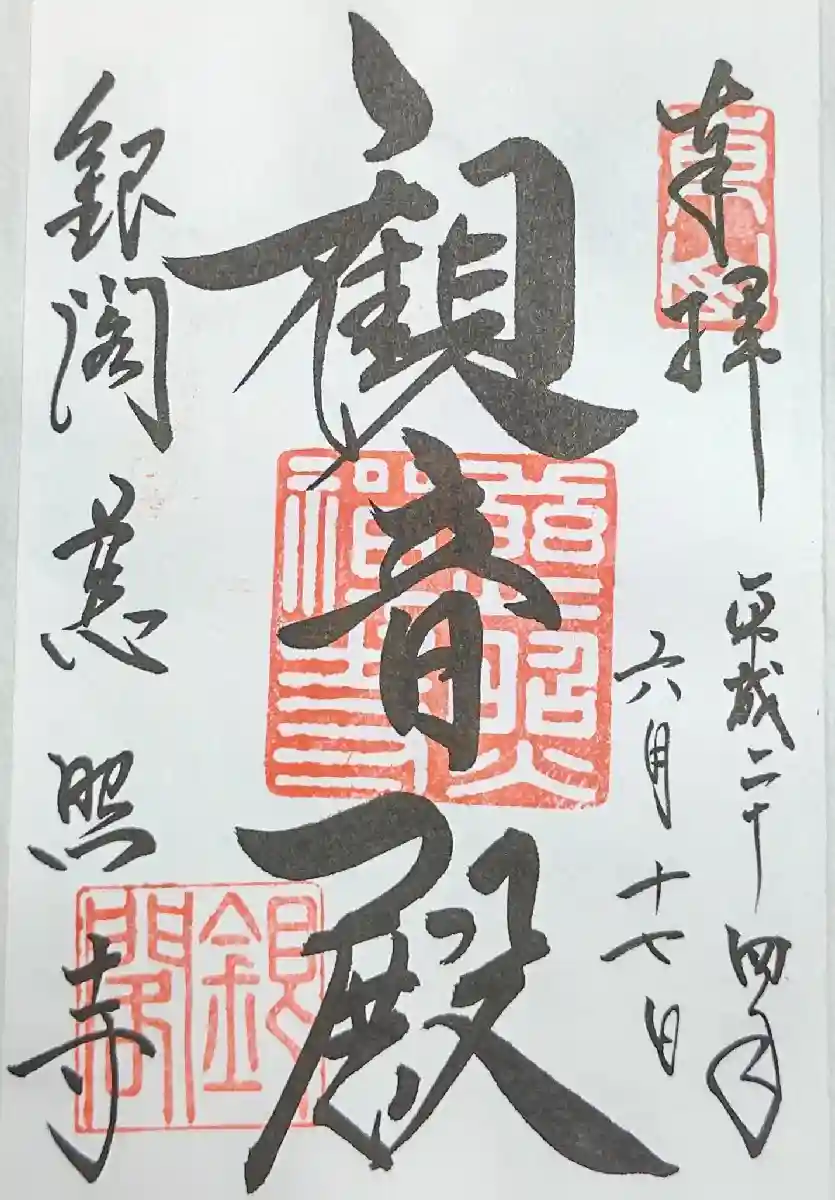 奉拝
東山
平成二十四年
六月十七日
觀音殿
慈照禅寺
銀閣慈照寺
銀閣